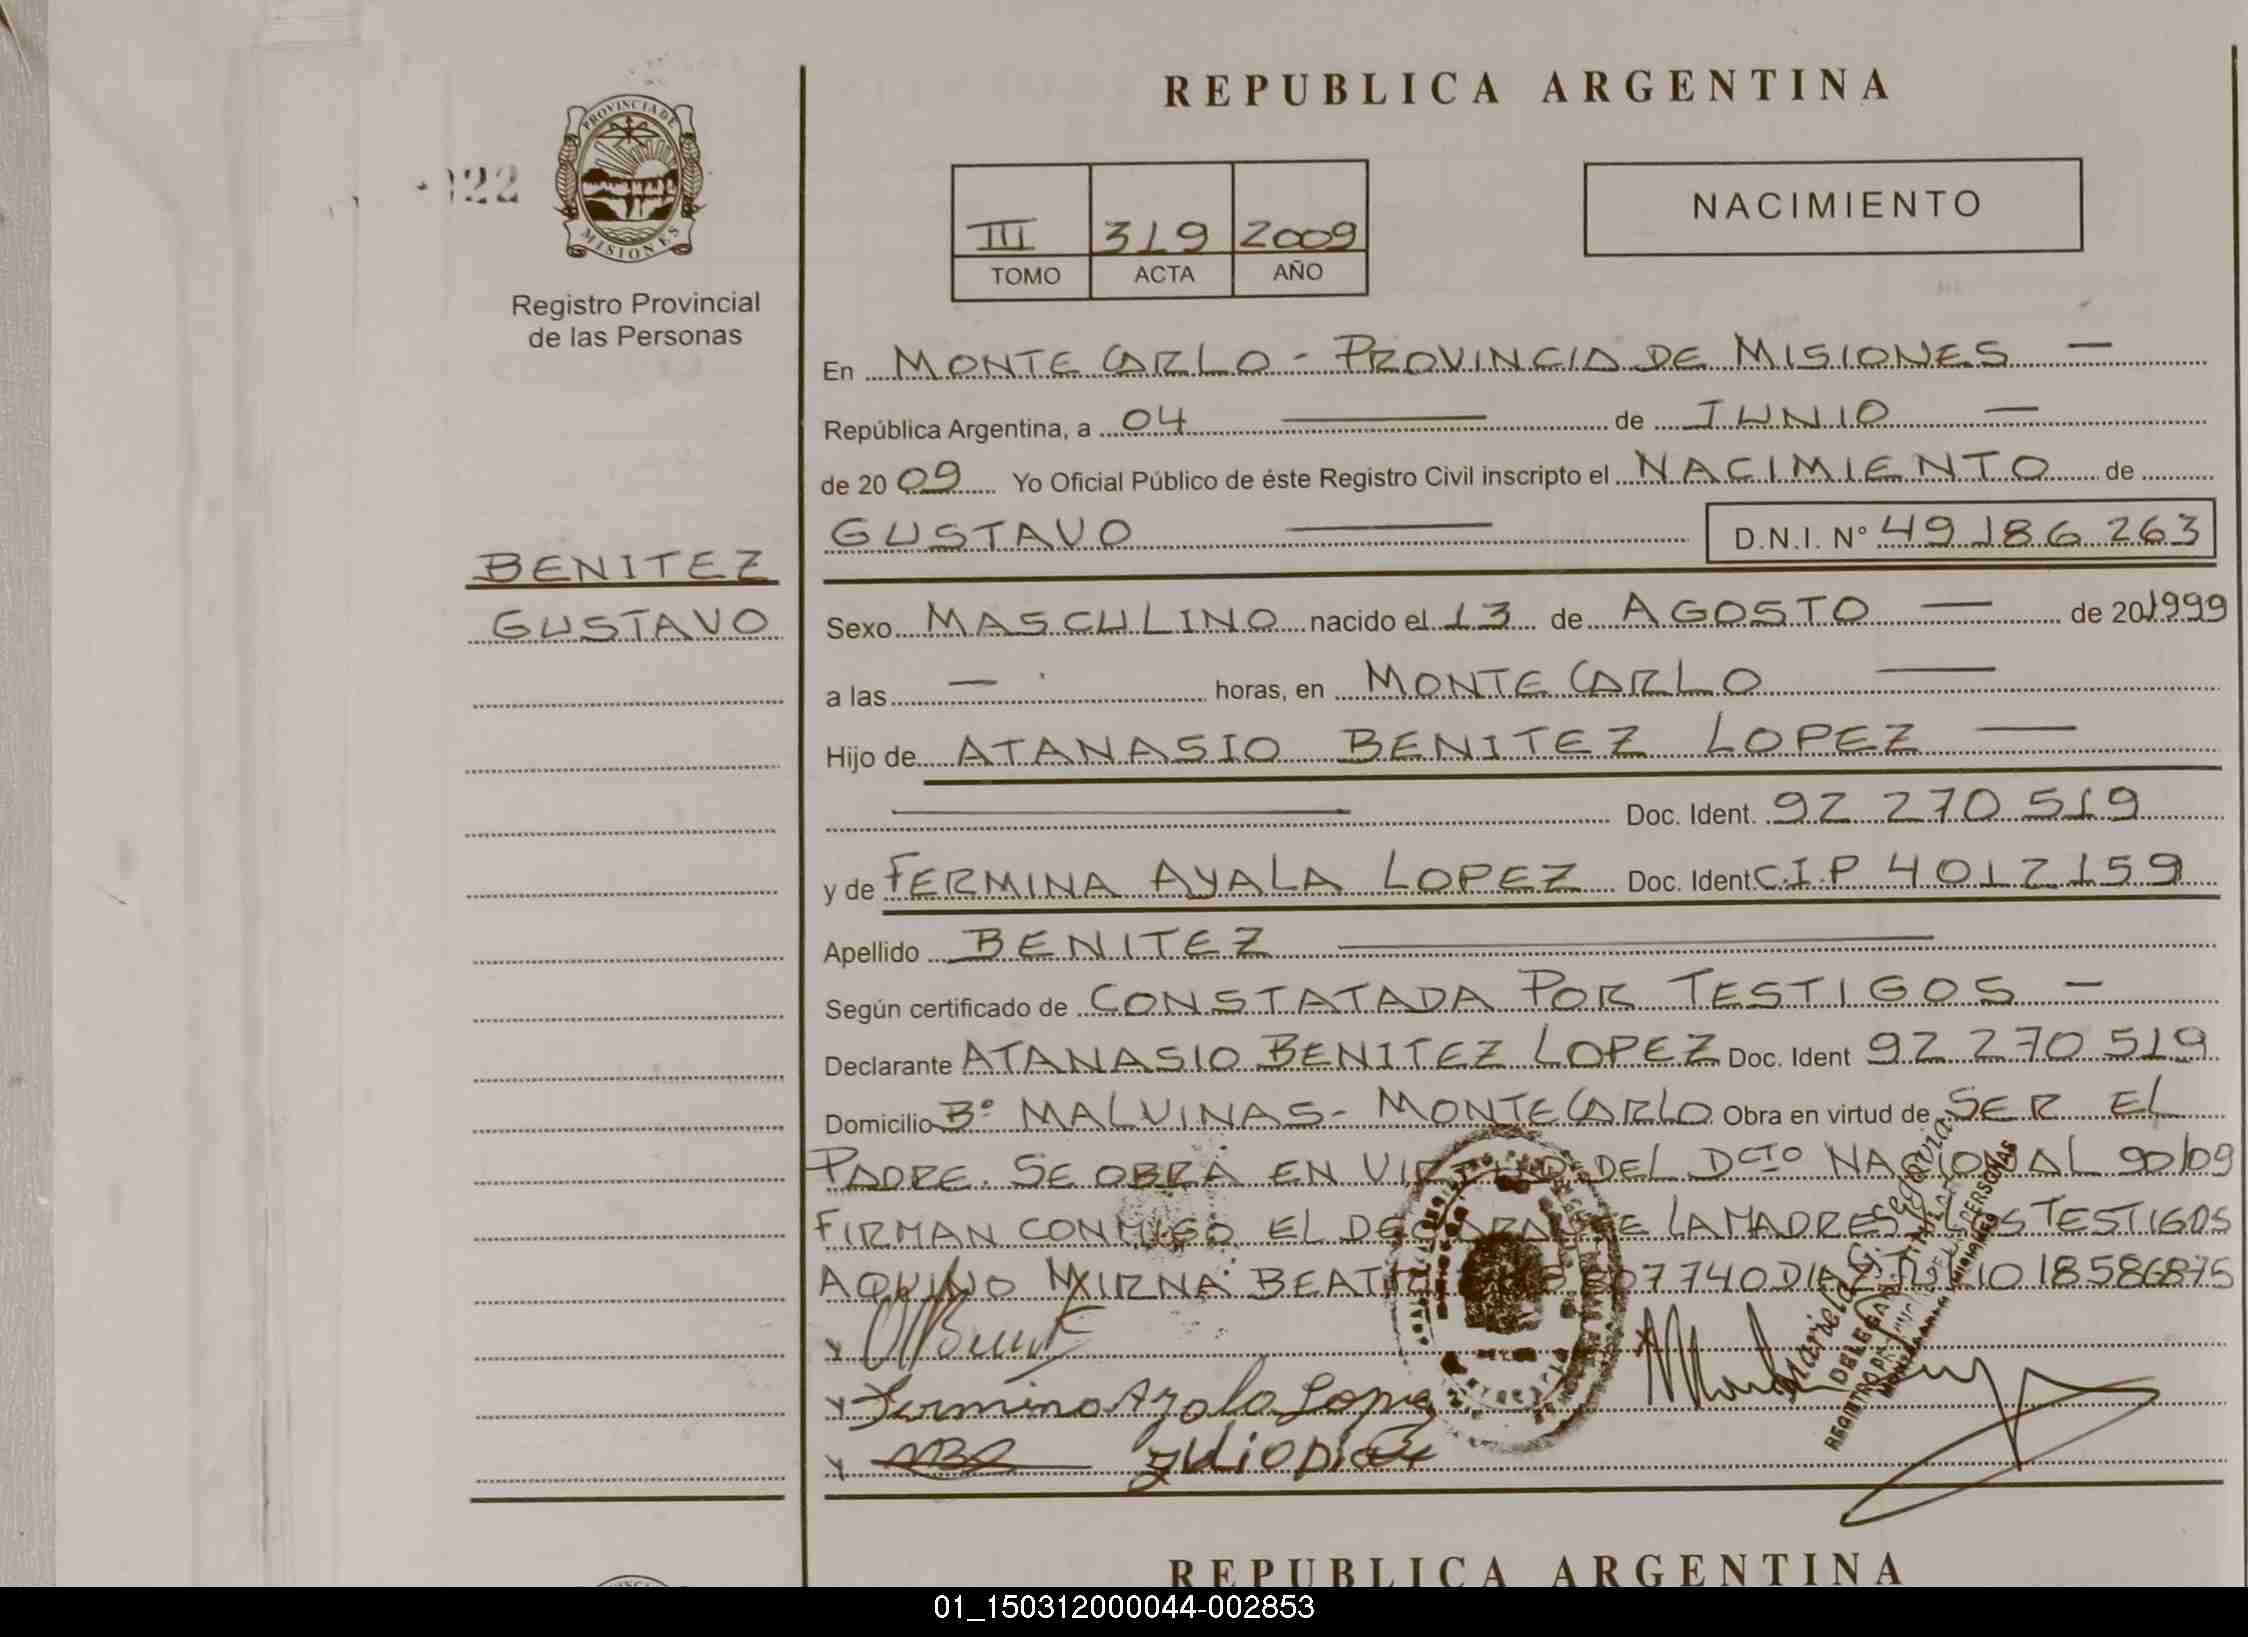 REPUBLICA ARGENTINA
PROVINCIA DE
MISIONES
022
Registro Provincial
de las Personas
III 319 2009
TOMO ACTA AÑO
NACIMIENTO
En MONTE CARLO - PROVINCIA DE MISIONES —
República Argentina, a 04 — de JUNIO —
de 20 09 Yo Oficial Público de éste Registro Civil inscripto el NACIMIENTO de
GUSTAVO — D.N.I. Nº 49 186 263
BENITEZ
GUSTAVO
Sexo MASCULINO nacido el 13 de AGOSTO — de 20 1999
a las — horas, en MONTE CARLO —
Hijo de ATANASIO BENITEZ LOPEZ —
— Doc. Ident. 92 270 519
y de FERMINA AYALA LOPEZ Doc. Ident C.I.P 4012159
Apellido BENITEZ —
Según certificado de CONSTATADA POR TESTIGOS —
Declarante ATANASIO BENITEZ LOPEZ Doc. Ident 92 270 519
Domicilio Bº MALVINAS - MONTECARLO Obra en virtud de SER EL
PADRE. SE OBRA EN VIRTUD DEL DCTO NACIONAL 90/09
FIRMAN CONMIGO EL DECLARANTE LA MADRE TESTIGOS
AQUINO MIRNA BEATRIZ 7740 DIAZ 18586875
Fermina Ayala Lopez
Julio Diaz
REPUBLICA ARGENTINA
01_150312000044-002853